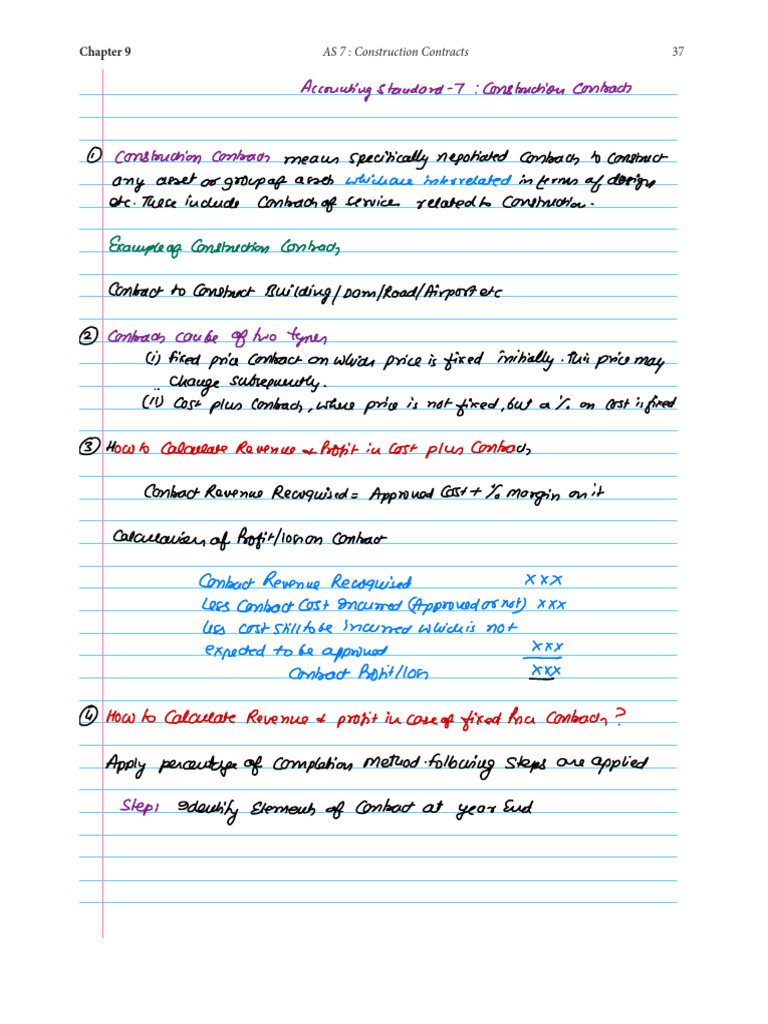 Chapter 9 AS 7 : Construction Contracts 37
Accounting Standard-7 : Construction Contracts
① Construction Contracts means specifically negotiated Contracts to construct
any asset or group of assets which are interrelated in terms of design
etc. These include Contracts of services related to Construction.
Example of Construction Contracts
Contract to Construct Building/Dam/Road/Airport etc
② Contracts can be of two types
(i) fixed price Contract on which price is fixed initially. This price may
change subsequently.
(ii) Cost plus Contracts, where price is not fixed, but a % on cost is fixed
③ How to Calculate Revenue & Profit in Cost plus Contracts
Contract Revenue Recognised = Approved Cost + % margin on it
Calculation of Profit/loss on Contract
Contract Revenue Recognised xxx
Less Contract Cost Incurred (Approved or not) xxx
Less cost still to be Incurred which is not
expected to be approved xxx
Contract Profit/loss xxx
④ How to Calculate Revenue & profit in case of fixed Price Contracts?
Apply percentage of Completion method. following steps are applied
Step1 Identify Elements of Contract at year End